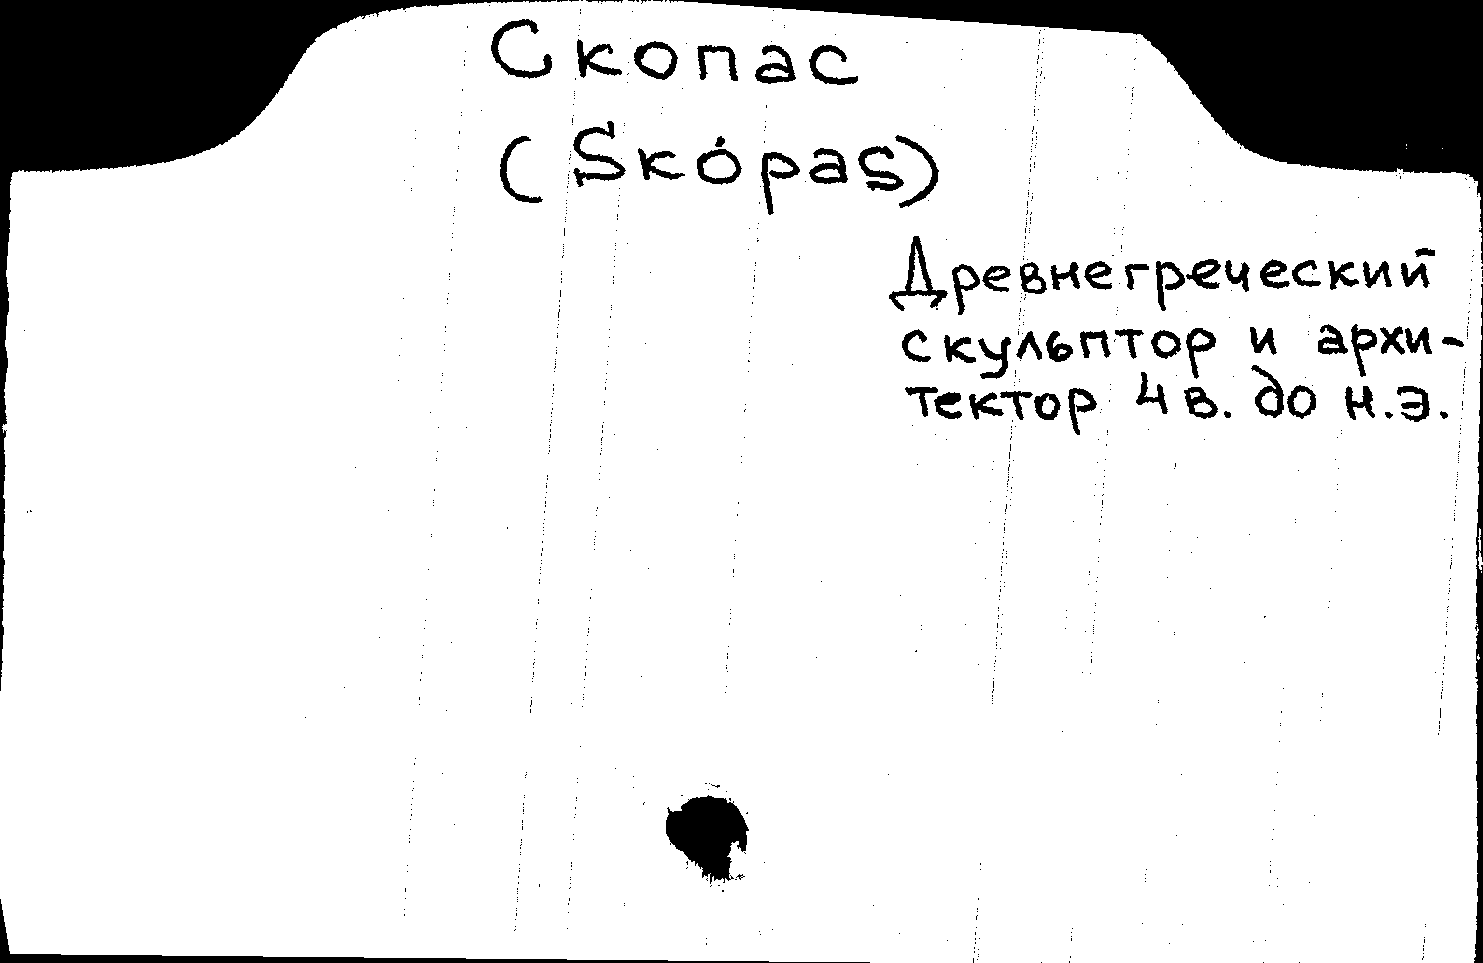 Скопас
(Skópas)
Древнегреческий
скульптор и архи-
тектор 4 в. до н.э.